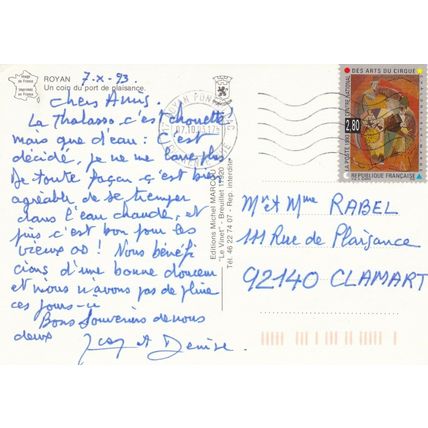 Image de France
Imprimée en France
ROYAN
Un coin du port de plaisance.
7.X.93.
Chers Amis.
La Thalasso, c'est chouette!
mais que d'eau : C'est
décidé, je ne me lave plus
De toute façon ç'est bien
agréable de se tremper
dans l'eau chaude, et
puis c'est bon pour les
vieux os ! Nous bénéfi
cions d'une bonne douceur
et nous n'avons pas de pluie
ces jours-ci
Bons Souvenirs de nous
deux
et Denise.
Editions Michel MARCOU
"Le Vinet" - Breuillet 17920
Tél. 46 22 74 07 - Rep. interdite
07.10.93
DES ARTS DU CIRQUE
LA POSTE 1993
2,80
RÉPUBLIQUE FRANÇAISE
Mr et Mme RABEL
111 Rue de Plaisance
92140 CLAMART